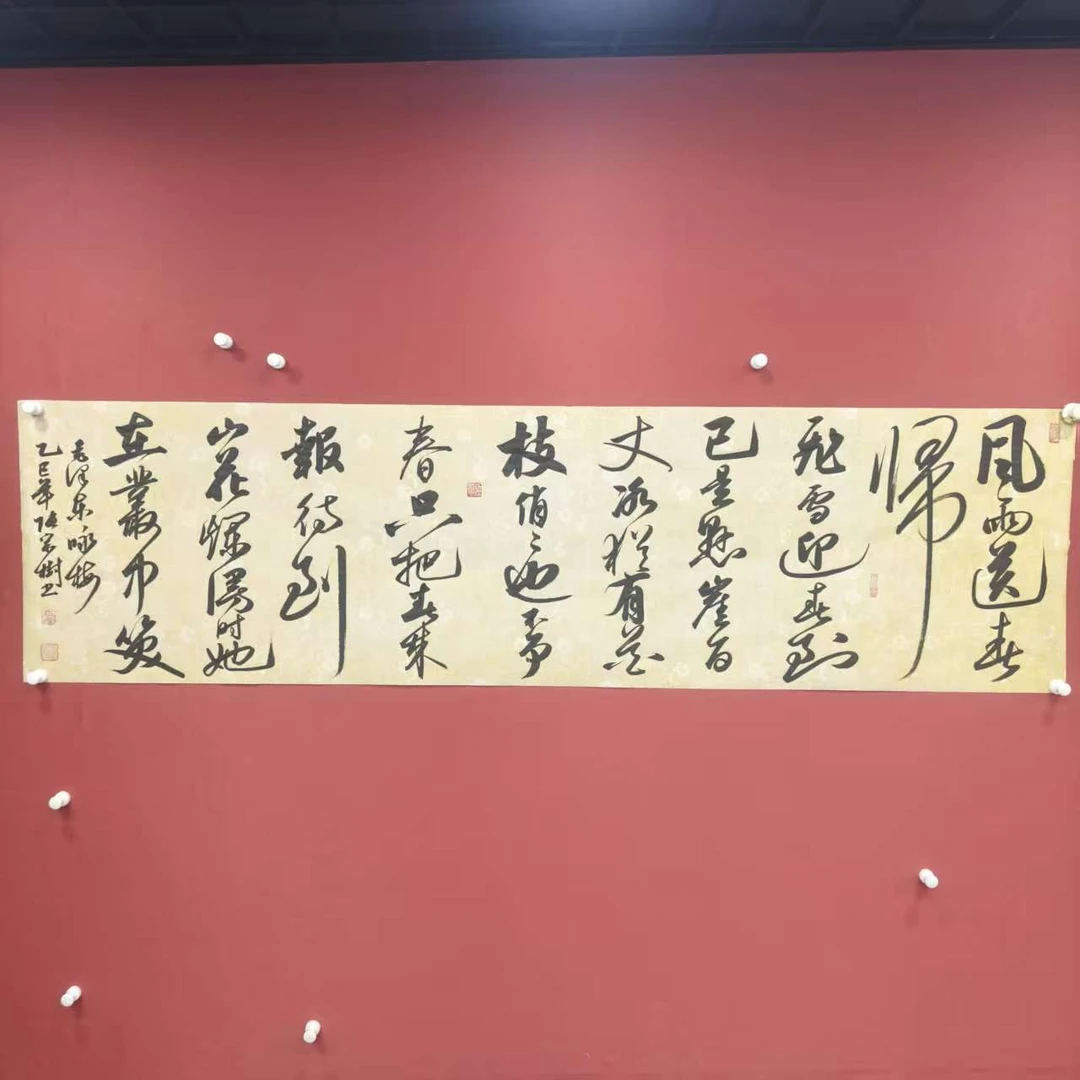 風雨送春
帰
飛雪迎春到
已是懸崖百
丈冰猶有花
枝俏々也不争
春只把春来
報待到
山花爛漫时她
在叢中笑
毛泽东咏梅
乙巳年 樹书